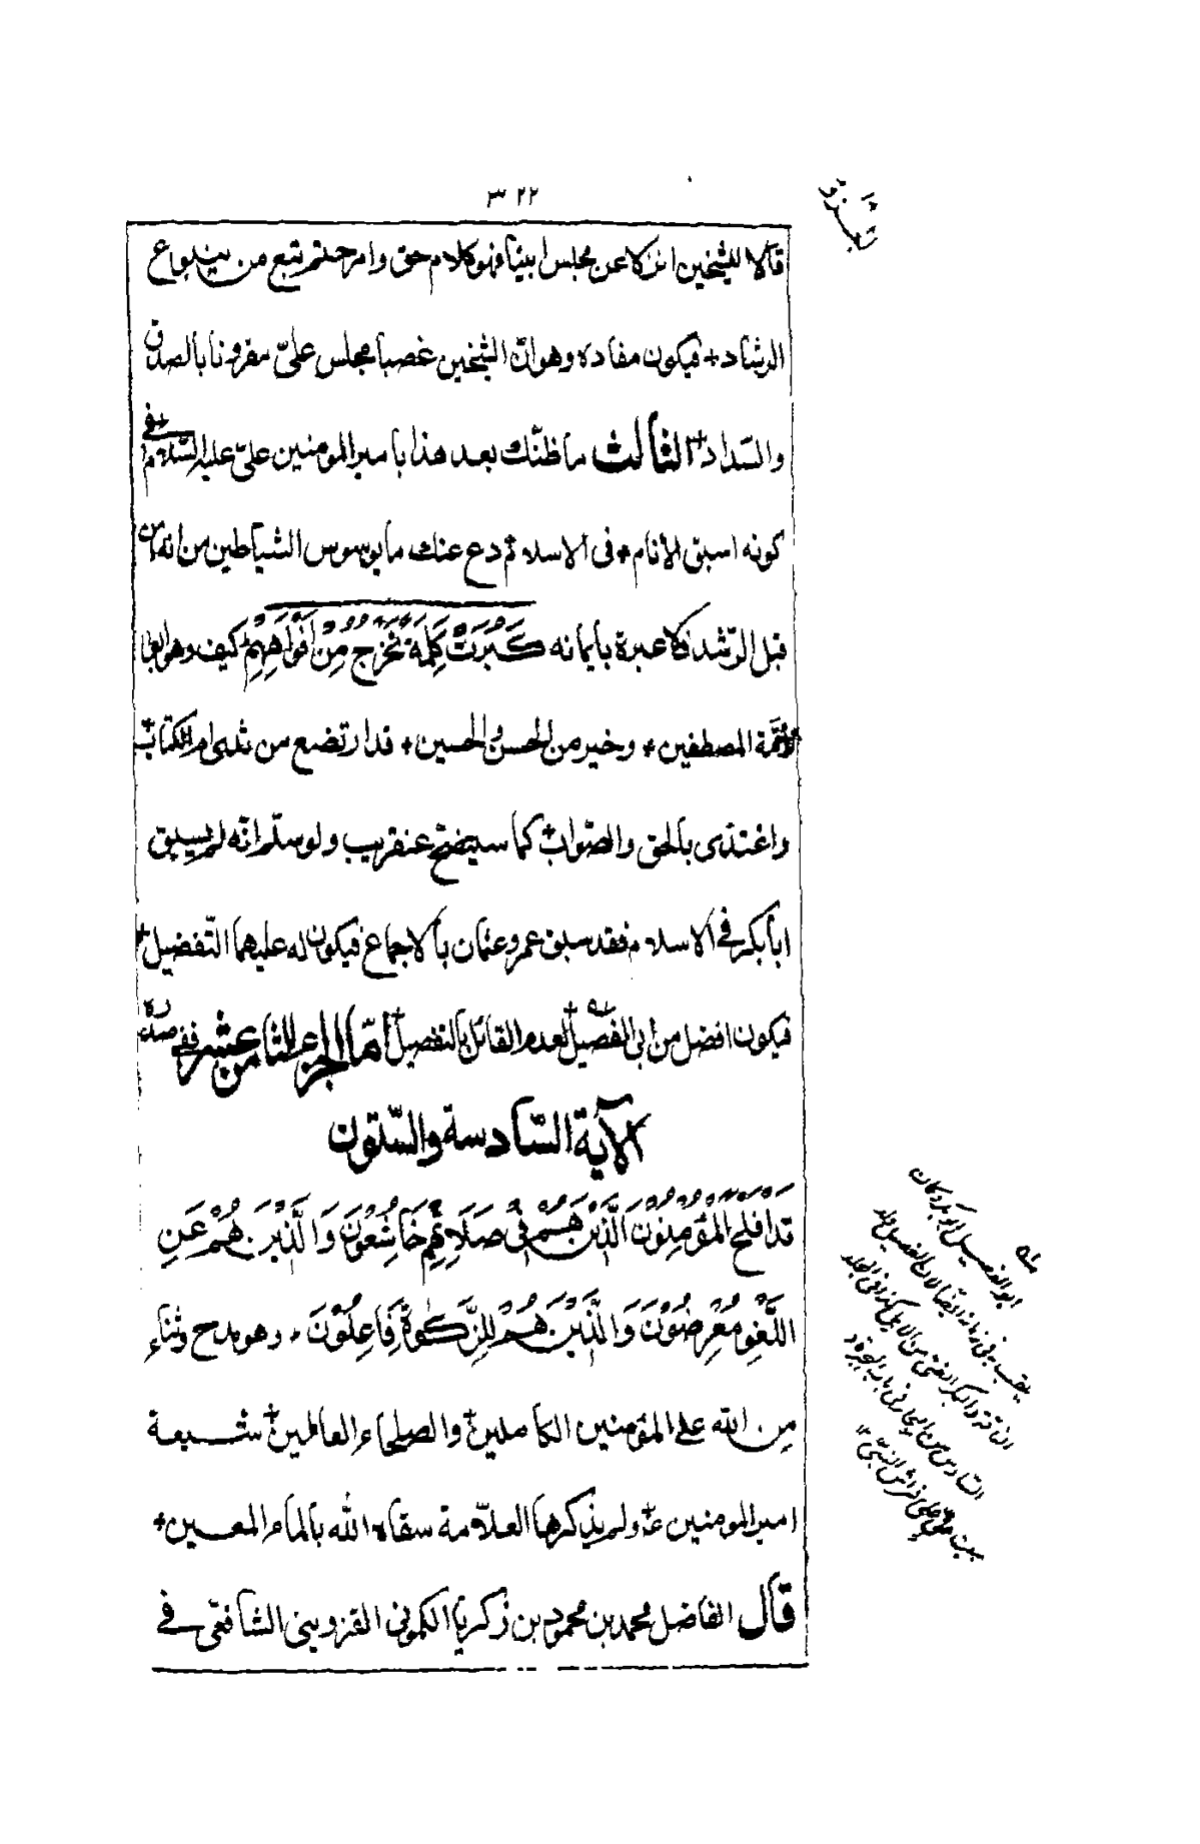 ٣٢٢
قالا للشيخين انزلا عن مجلس ابينا فهو كلام حق وامر حتم نبع من ينبوع
الرشاد + فيكون مفاده وهو انّ الشيخين غصبا مجلس عليّ مقرونا بالصدق
والسّداد + الثالث ما ظنّك بعد هذا بامير المومنين عليّ عليه السّلام + في
كونه اسبق الانام + فى الاسلام دع عنك ما يوسوس الشياطين من انه امن
قبل الرّشد فلا عبرة بايمانه كَبُرَتْ كَلِمَةً تَخْرُجُ مِنْ اَفْوَاهِهِمْ كيف وهو ابو
الائمّة المصطفين + وخير من الحسن والحسين + قد ارتضع من ثدى ام الكتاب +
واغتذى بالحق والصّواب + كما سيتضح عنقريب ولو سلّم انّه لم يسبق
ابا بكر فى الاسلام فقد سبق عمر وعثمان بالاجماع فيكون له عليهما التّفضيل +
فيكون افضل من ابى الفصيل + لعدم القائل بالتفصيل + امّا الجزء الثامن عشر ففى صدره
الآية السّادسة والسّتون
قَدْ اَفْلَحَ الْمُؤْمِنُوْنَ الَّذِيْنَ هُمْ فِيْ صَلَاتِهِمْ خَاشِعُوْنَ وَالَّذِيْنَ هُمْ عَنِ
اللَّغْوِ مُعْرِضُوْنَ وَالَّذِيْنَ هُمْ لِلزَّكٰوةِ فَاعِلُوْنَ + وهو مدح وثناء
مِن الله على المؤمنين الكاملين + والصلحاء العالمين + شيعة
امير المومنين ع + ولم يذكرها العلّامة سقاه الله بالماء المعين +
قال الفاضل محمد بن محمود بن زكريا الكمونى القزوينى الشافعى فى
ابو الفصيل ابو بكر وكان